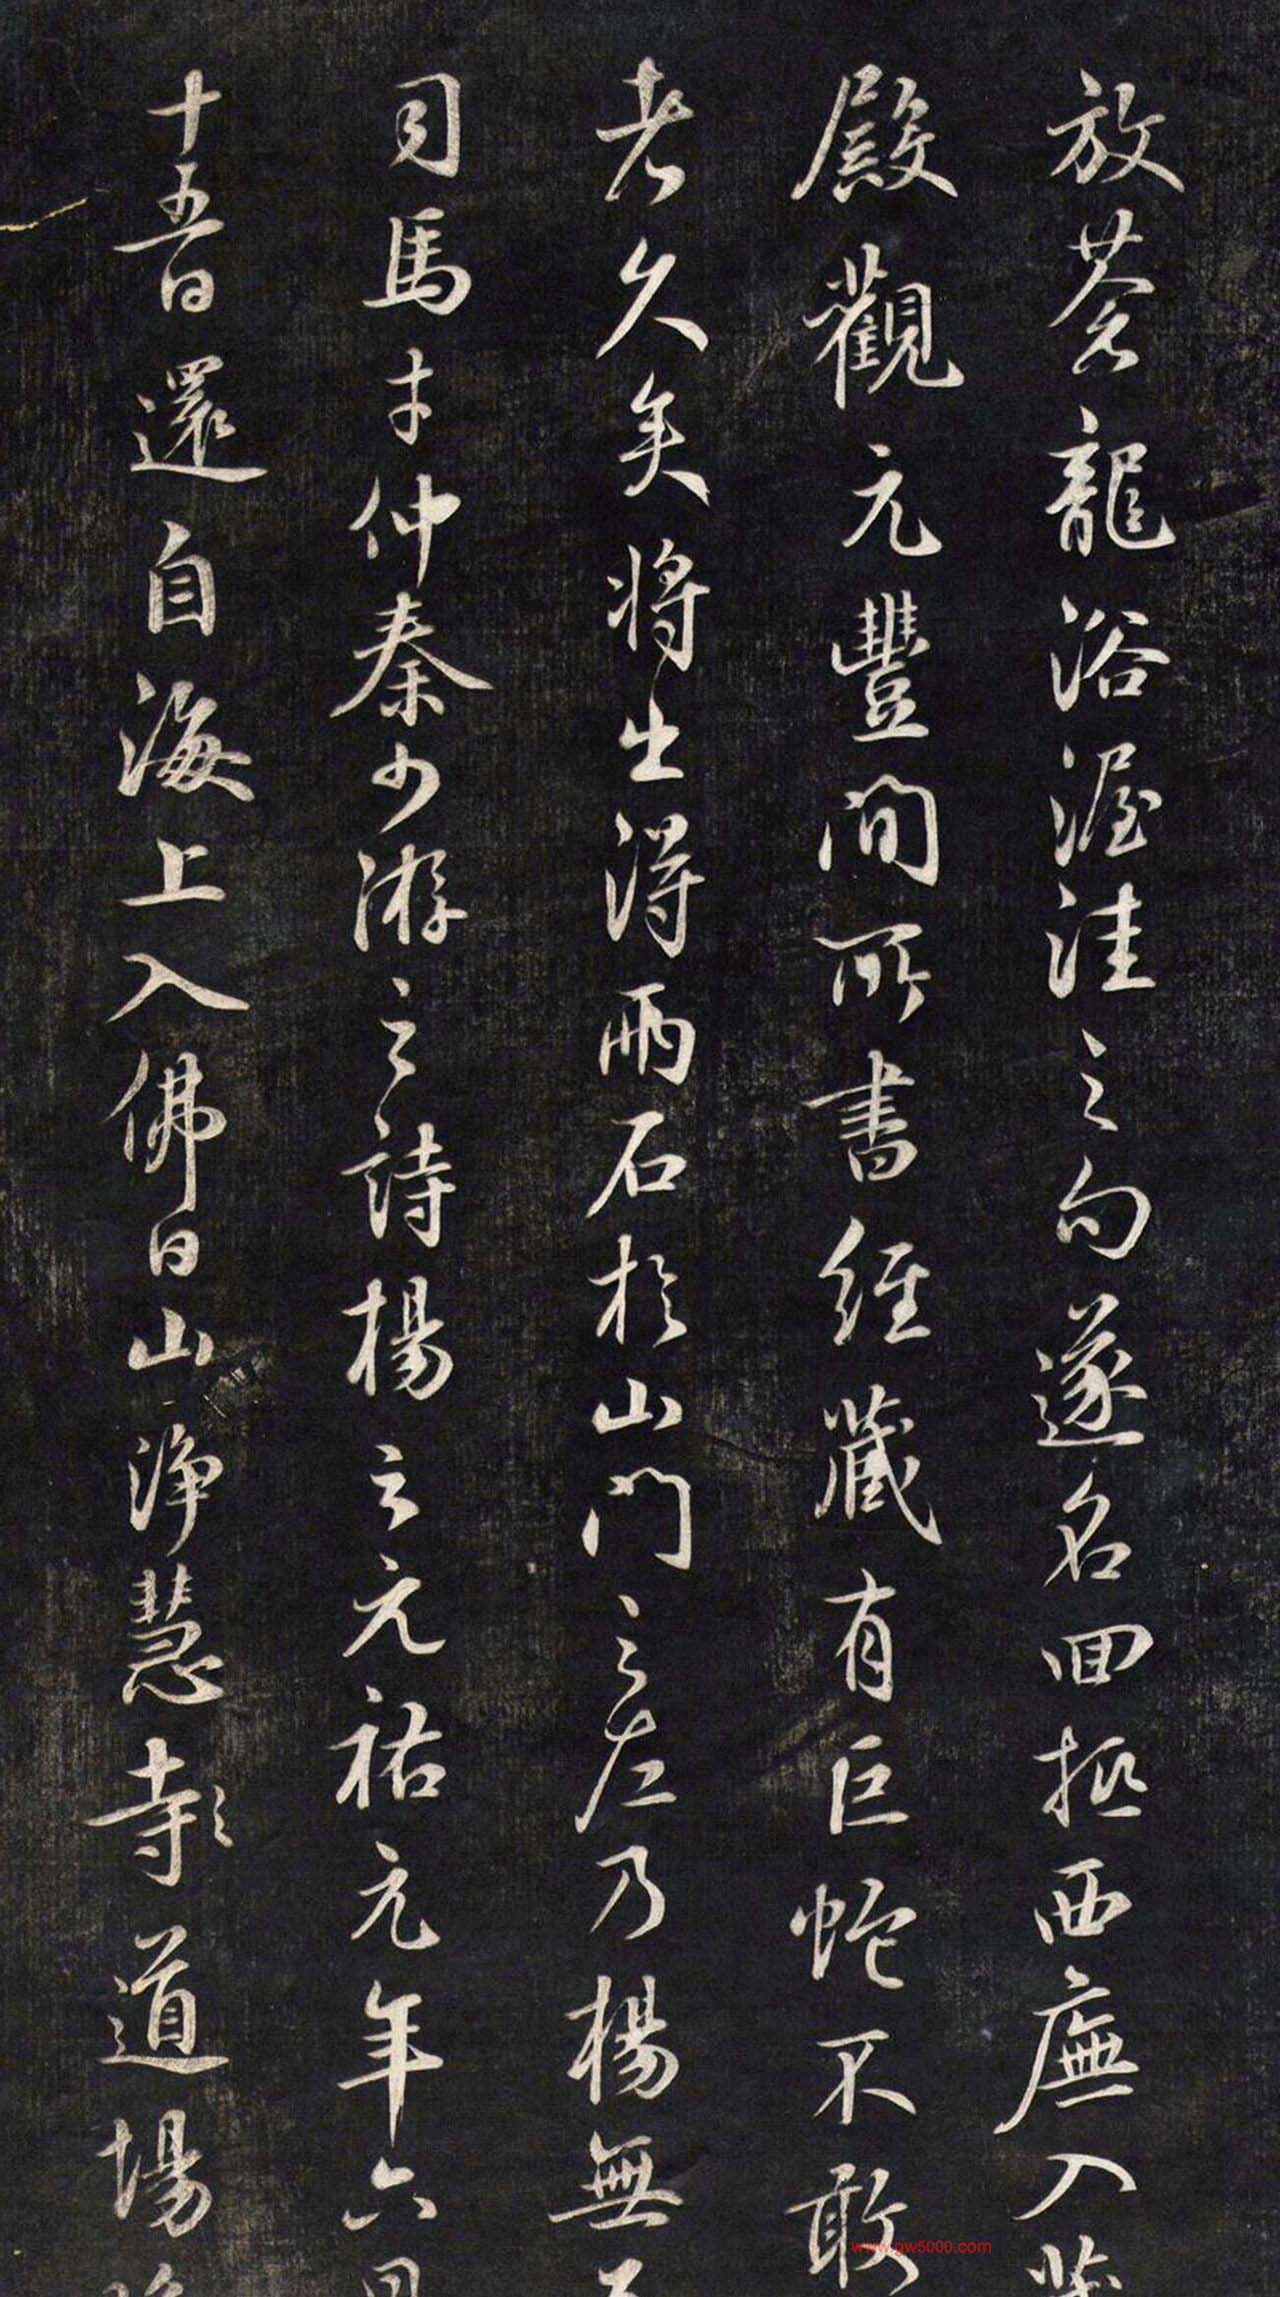 放蒼龍浴渥洼之句遂名回極西廡入
殿觀元豐間所書經藏有巨蛇不敢
者久矣將出得兩石於山門之左乃楊無
司馬才仲秦少游之詩楊之元祐元年六月
十五日還自海上入佛日山淨慧寺之道場
www.gw5000.com